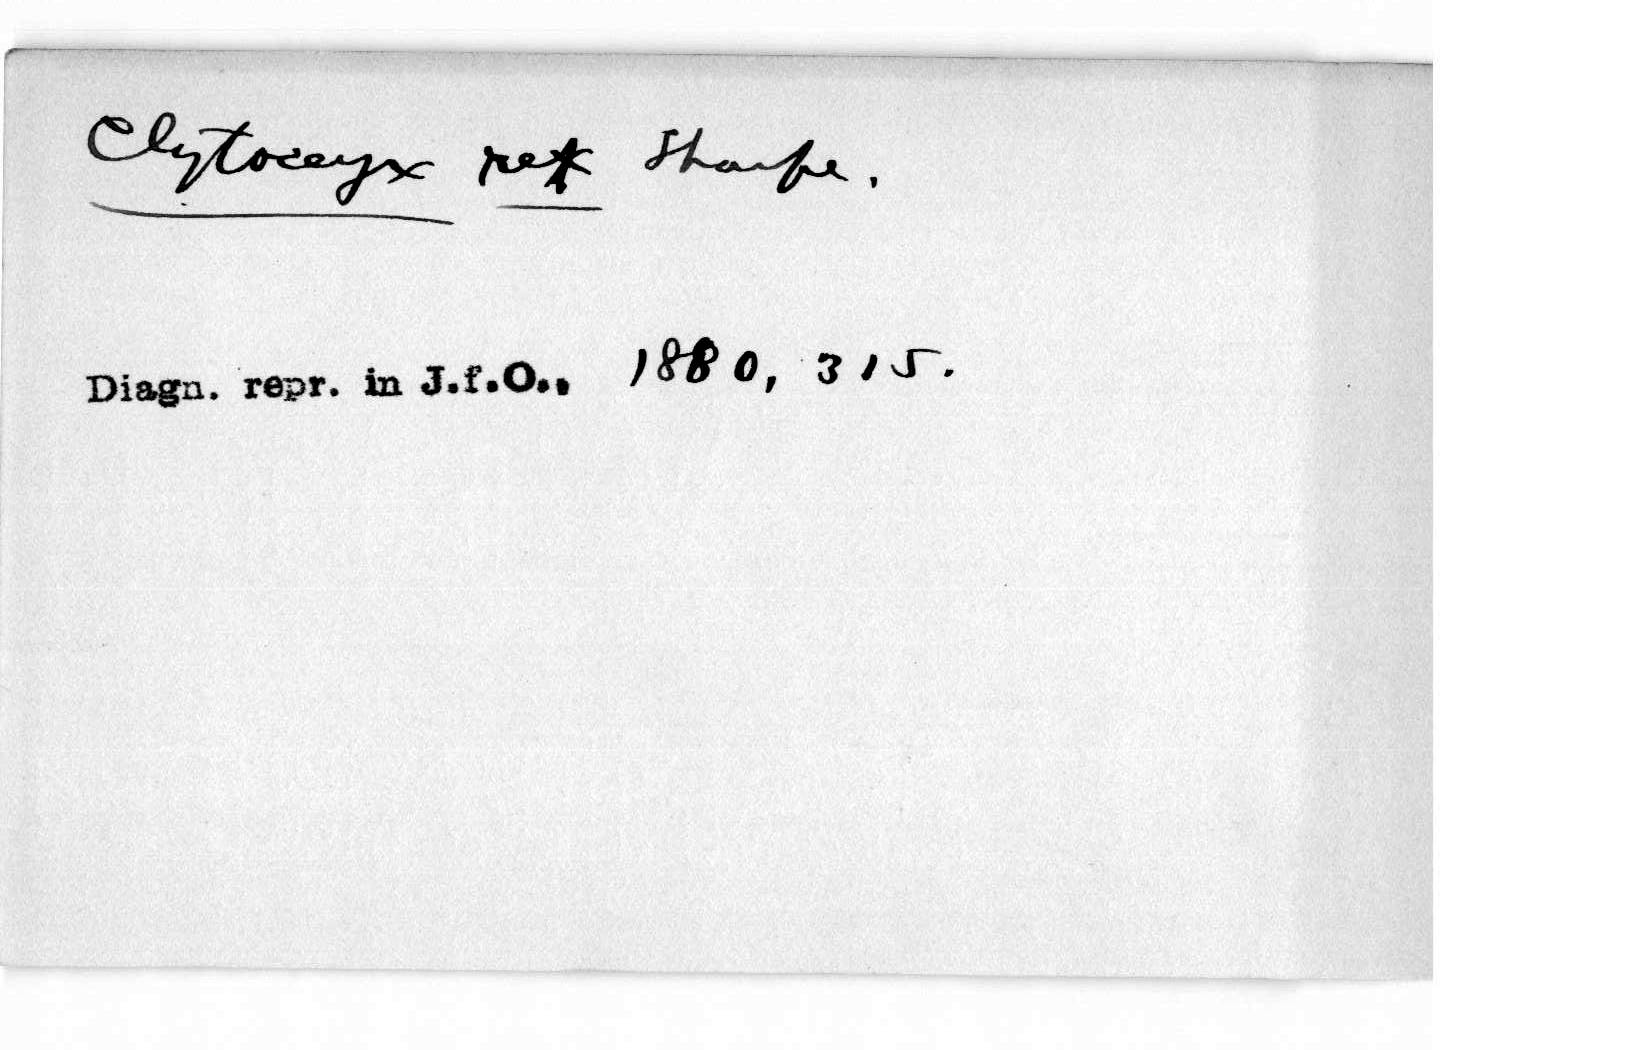 Clytoceyx rex Sharpe.
Diagn. repr. in J.f.O., 1880, 315.